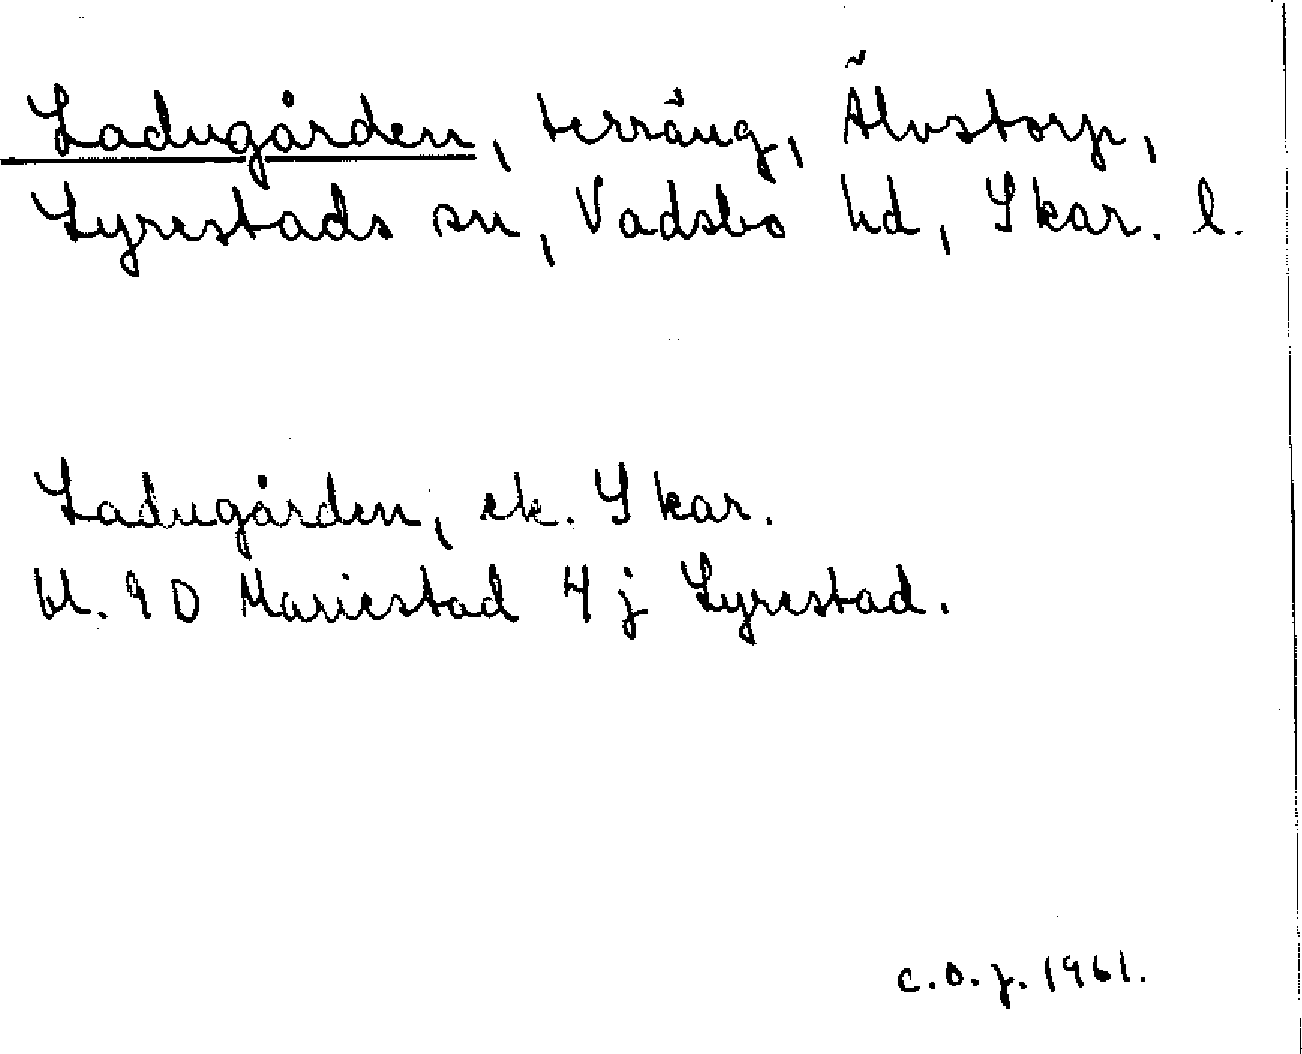 Ladugården, terräng, Älvstorp,
Lyrestads sn, Vadsbo hd, Skar. l.
Ladugården, ek. Skar.
bl. 9D Mariestad 4 j Lyrestad.
c.o.j. 1961.